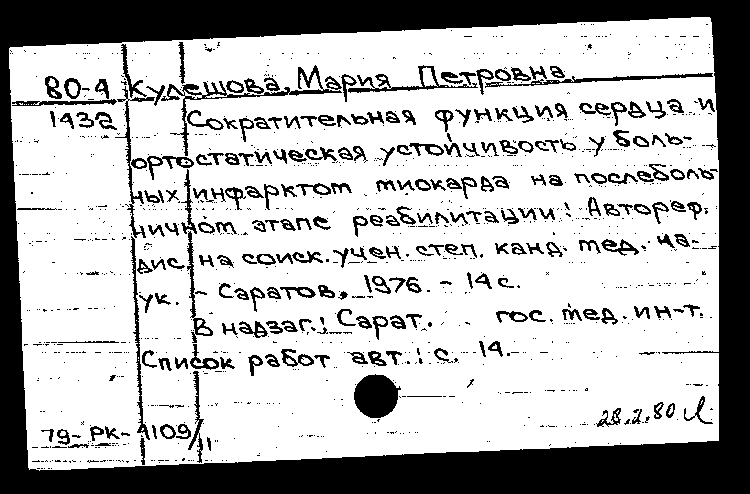 80-4 Кулешова, Мария Петровна.
1432 Сократительная функция сердца и
ортостатическая устойчивость у боль-
ных инфарктом миокарда на послеболь
ничном этапе реабилитации: Автореф.
дис. на соиск. учен. степ. канд. мед. на-
ук. - Саратов, 1976. - 14 с.
В надзаг.: Сарат. гос. мед. ин-т.
Список работ авт.: с. 14.
28.2.80
79-РК-1109/